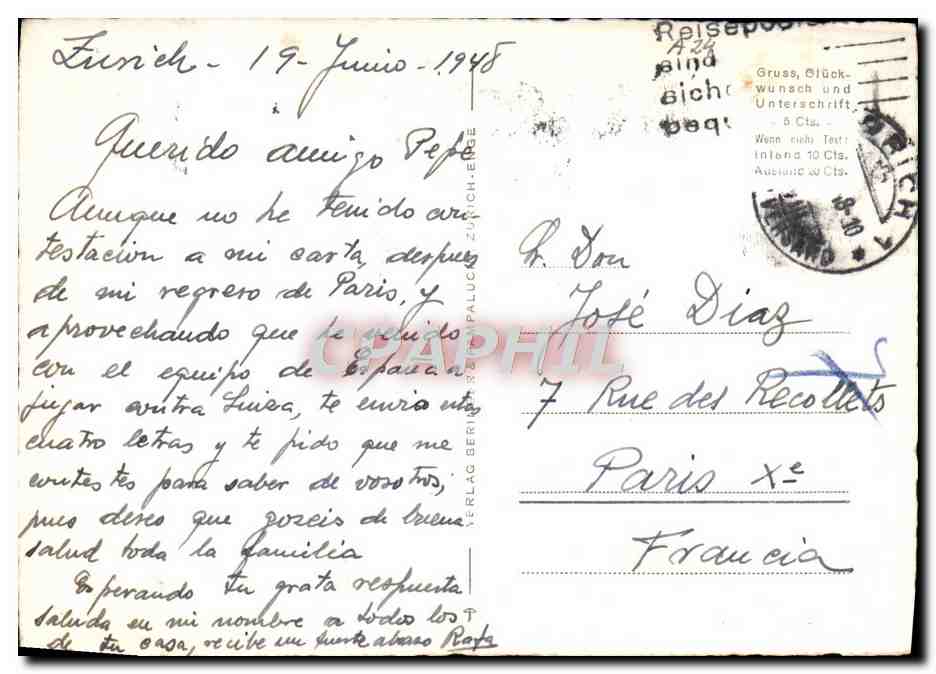 Zurich - 19 - Junio - 1948
Querido amigo Pepe
Aunque no he tenido con-
testacion a mi carta, despues
de mi regreso de Paris, y
aprovechando que he venido
con el equipo de España a
jugar contra Suiza, te envio estas
cuatro letras y te pido que me
contestes para saber de vosotros,
pues deseo que goseis de buena
salud toda la familia
Esperando tu grata respuesta
saluda en mi nombre a todos los
de tu casa, recibe un fuerte abrazo Rafa
VERLAG BERIN ZURICH-ENGE
A 24
sind
Gruss, Glück-
wunsch und
Unterschrift
- 5 Cts. -
Wenn mehr Text:
Inland 10 Cts.
Ausland 20 Cts.
VERSAND
Sr. Don
José Diaz
7 Rue des Recollets
Paris Xe
Francia
CPAPHIL